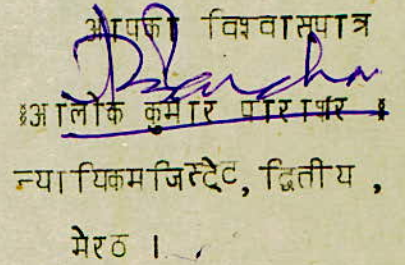 आपका विश्वासपात्र
§आलोक कुमार पाराशर §
न्यायिकमजिस्ट्रेट, द्वितीय ,
मेरठ ।